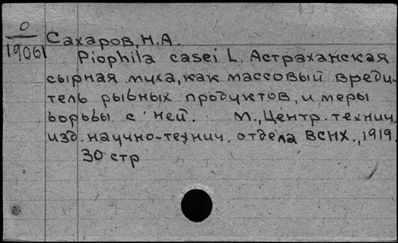 0
19061
Сахаров, Н.А.
Piophila casei L. Астраханская
сырная муха, как массовый вреди-
тель рыбных продуктов, и меры
борьбы с ней. М., Центр. технич.
изд. научно-технич. отдела ВСНХ., 1919.
30 стр